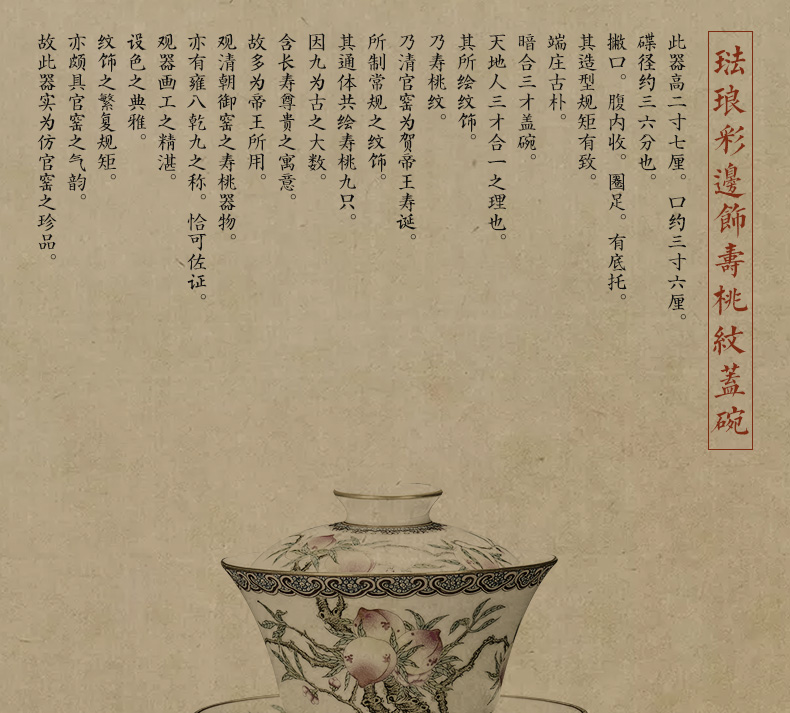 琺瑯彩邊飾壽桃紋蓋碗
此器高二寸七厘。口约三寸六厘。
碟径约三六分也。
撇口。腹内收。圈足。有底托。
其造型规矩有致。
端庄古朴。
暗合三才盖碗。
天地人三才合一之理也。
其所绘纹饰。
乃寿桃纹。
乃清官窑为贺帝王寿诞。
所制常规之纹饰。
其通体共绘寿桃九只。
因九为古之大数。
含长寿尊贵之寓意。
故多为帝王所用。
观清朝御窑之寿桃器物。
亦有雍八乾九之称。恰可佐证。
观器画工之精湛。
设色之典雅。
纹饰之繁复规矩。
亦颇具官窑之气韵。
故此器实为仿官窑之珍品。